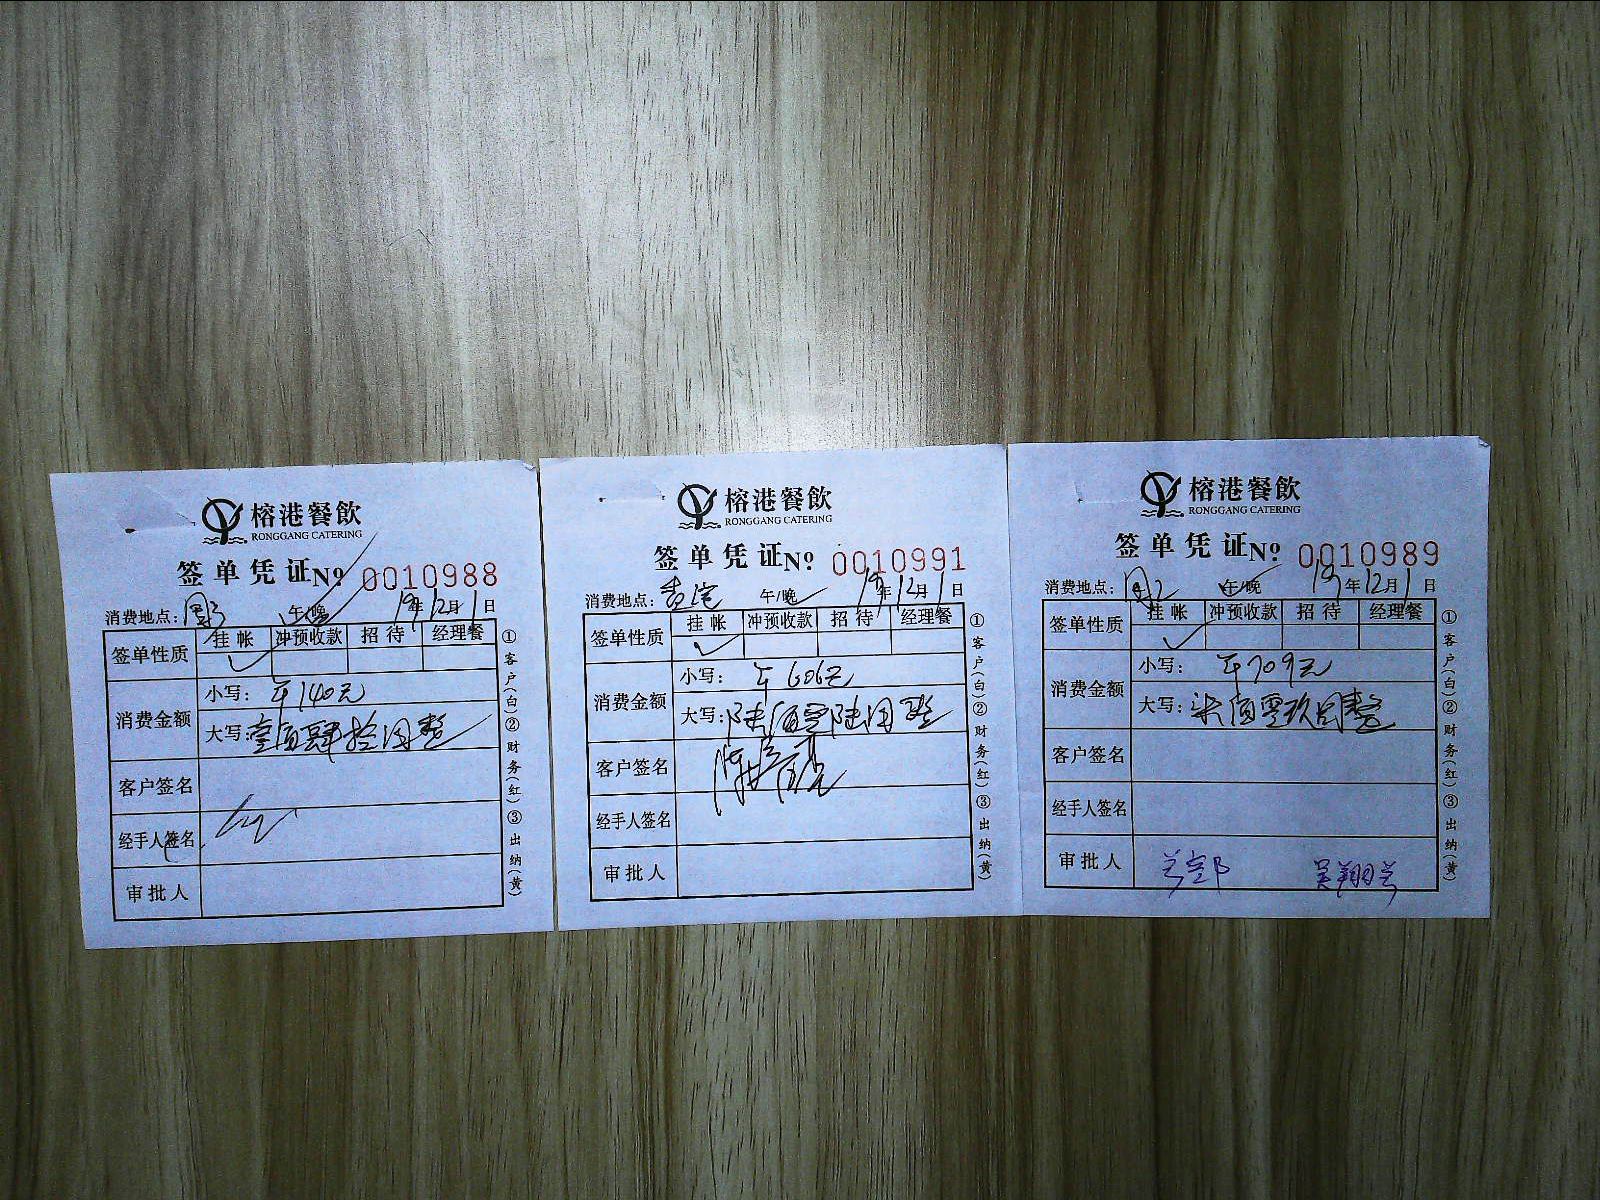 榕港餐飲
RONGGANG CATERING
签单凭证No 0010988
消费地点: 午/晚 19年12月1日
签单性质 挂帐 冲预收款 招待 经理餐
消费金额
小写: 140元
大写: 壹佰肆拾圆整
客户签名
经手人签名
审批人
①客户(白)②财务(红)③出纳(黄)
榕港餐飲
RONGGANG CATERING
签单凭证No 0010991
消费地点: 午/晚 19年12月1日
签单性质 挂帐 冲预收款 招待 经理餐
消费金额
小写: 606元
大写: 陆佰零陆圆整
客户签名
经手人签名
审批人
①客户(白)②财务(红)③出纳(黄)
榕港餐飲
RONGGANG CATERING
签单凭证No 0010989
消费地点: 午/晚 19年12月1日
签单性质 挂帐 冲预收款 招待 经理餐
消费金额
小写: 709元
大写: 柒佰零玖圆整
客户签名
经手人签名
审批人
①客户(白)②财务(红)③出纳(黄)